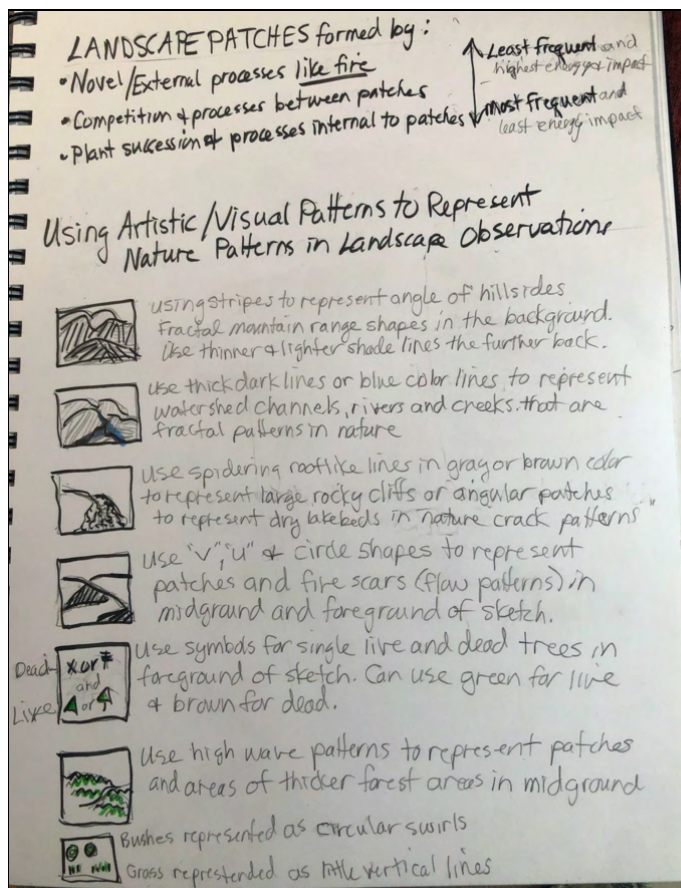 LANDSCAPE PATCHES formed by:
• Novel/External processes like fire
• Competition & processes between patches
• Plant succession & processes internal to patches
Least frequent and
highest energy impact
most frequent and
least energy impact
Using Artistic/Visual Patterns to Represent
Nature Patterns in Landscape Observations
using stripes to represent angle of hillsides
Fractal mountain range shapes in the background.
Use thinner & lighter shade lines the further back.
Use thick dark lines or blue color lines to represent
watershed channels, rivers and creeks that are
fractal patterns in nature
Use spidering rootlike lines in gray or brown color
to represent large rocky cliffs or angular patches
to represent dry lakebeds in nature crack patterns"
Use "V", "U" & circle shapes to represent
patches and fire scars (flow patterns) in
midground and foreground of sketch.
Dead
X or
and
Live
or
Use symbols for single live and dead trees in
foreground of sketch. Can use green for live
& brown for dead.
Use high wave patterns to represent patches
and areas of thicker forest areas in midground
Bushes represented as circular swirls
Grass represtended as little vertical lines